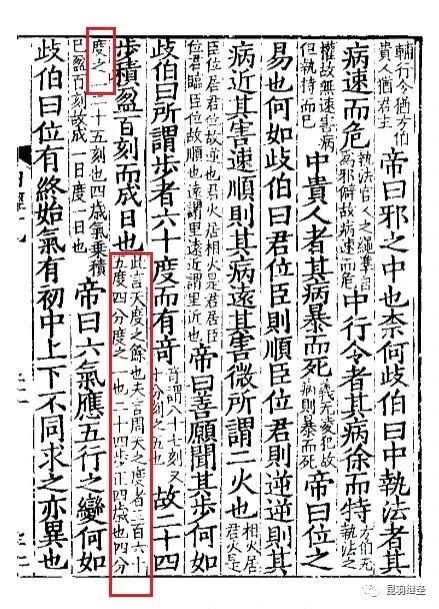 輔行令猶方伯
貴人猶君主
帝曰邪之中也柰何歧伯曰中執法者其
病速而危
執法官人之繩凖自
為邪僻故病速而危
中行令者其病徐而特
方伯无
執法之
權故無速害病
但執持而已
中貴人者其病暴而死
義无凌犯故
病則暴而死
帝曰位之
易也何如歧伯曰君位臣則順臣位君則逆逆則其
病近其害速順則其病遠其害微所謂二火也
相火居
君火是
臣位居君位故逆也君火居相火是君居臣
位君臨臣位故順也遠謂里遠近謂里近也
帝曰善願聞其步何如
歧伯曰所謂步者六十度而有奇
奇謂八十七刻又
十分刻之五也
故二十四
步積盈百刻而成日也
此言天度之餘也夫言周天之度者三百六十
五度四分度之一也二十四步正四歲也四分
度之一二十五刻也四歲氣乗積
已盈百刻故成一日度一日也
帝曰六氣應五行之變何如
歧伯曰位有終始氣有初中上下不同求之亦異也
昆羽继圣